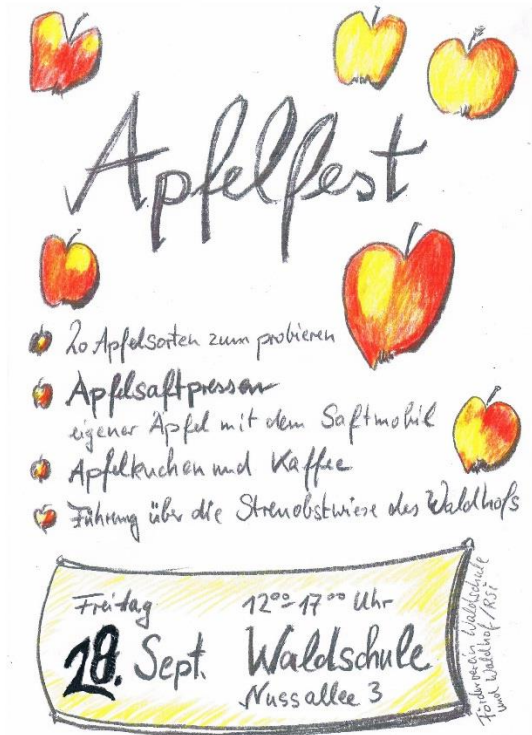 Apfelfest
20 Apfelsorten zum probieren
Apfelsaftpressen
eigener Äpfel mit dem Saftmobil
Apfelkuchen und Kaffee
Führung über die Streuobstwiese des Waldhofs
Freitag 12⁰⁰-17⁰⁰ Uhr
28. Sept. Waldschule
Nussallee 3
Förderverein Waldschule
und Waldhof / RSi